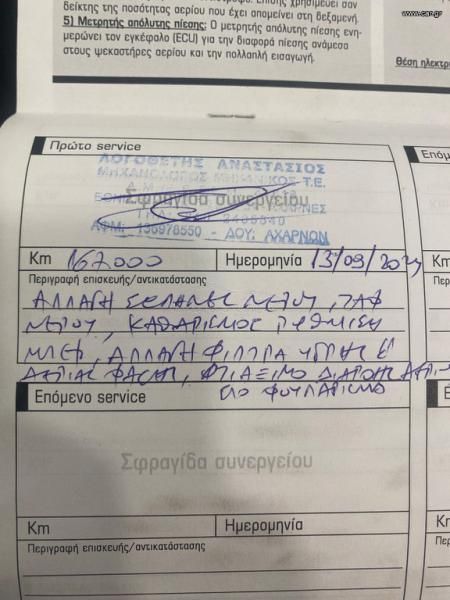 www.car.gr
δείκτης της ποσότητας αερίου που έχει απομείνει στη δεξαμενή.
5) Μετρητής απόλυτης πίεσης: Ο μετρητής απόλυτης πίεσης ενη-
μερώνει τον εγκέφαλο (ECU) για την διαφορά πίεσης ανάμεσα
στους ψεκαστήρες αερίου και την πολλαπλή εισαγωγή.
Θέση ηλεκτρ
Πρώτο service
ΛΟΓΟΘΕΤΗΣ ΑΝΑΣΤΑΣΙΟΣ
ΜΗΧΑΝΟΛΟΓΟΣ ΜΗΧΑΝΙΚΟΣ Τ.Ε.
Σφραγίδα συνεργείου
ΑΦΜ: 135978550 - ΔΟΥ: ΑΧΑΡΝΩΝ
Km 167.000 Ημερομηνία 13/09/2024
Περιγραφή επισκευής/αντικατάστασης
ΑΛΛΑΓΗ ΜΠΕΚ
ΚΑΘΑΡΙΣΜΟΣ ΡΥΘΜΙΣΗ
ΜΠΕΚ, ΑΛΛΑΓΗ ΦΙΛΤΡΑ ΥΓΡΗΣ &
ΑΕΡΙΑΣ ΦΑΣΗΣ, ΦΤΙΑΞΙΜΟ ΔΙΑΡΟΗΣ
ΣΤΟ ΦΟΥΛΑΡΙΣΜΑ
Επόμενο service
Σφραγίδα συνεργείου
Km Ημερομηνία
Περιγραφή επισκευής/αντικατάστασης